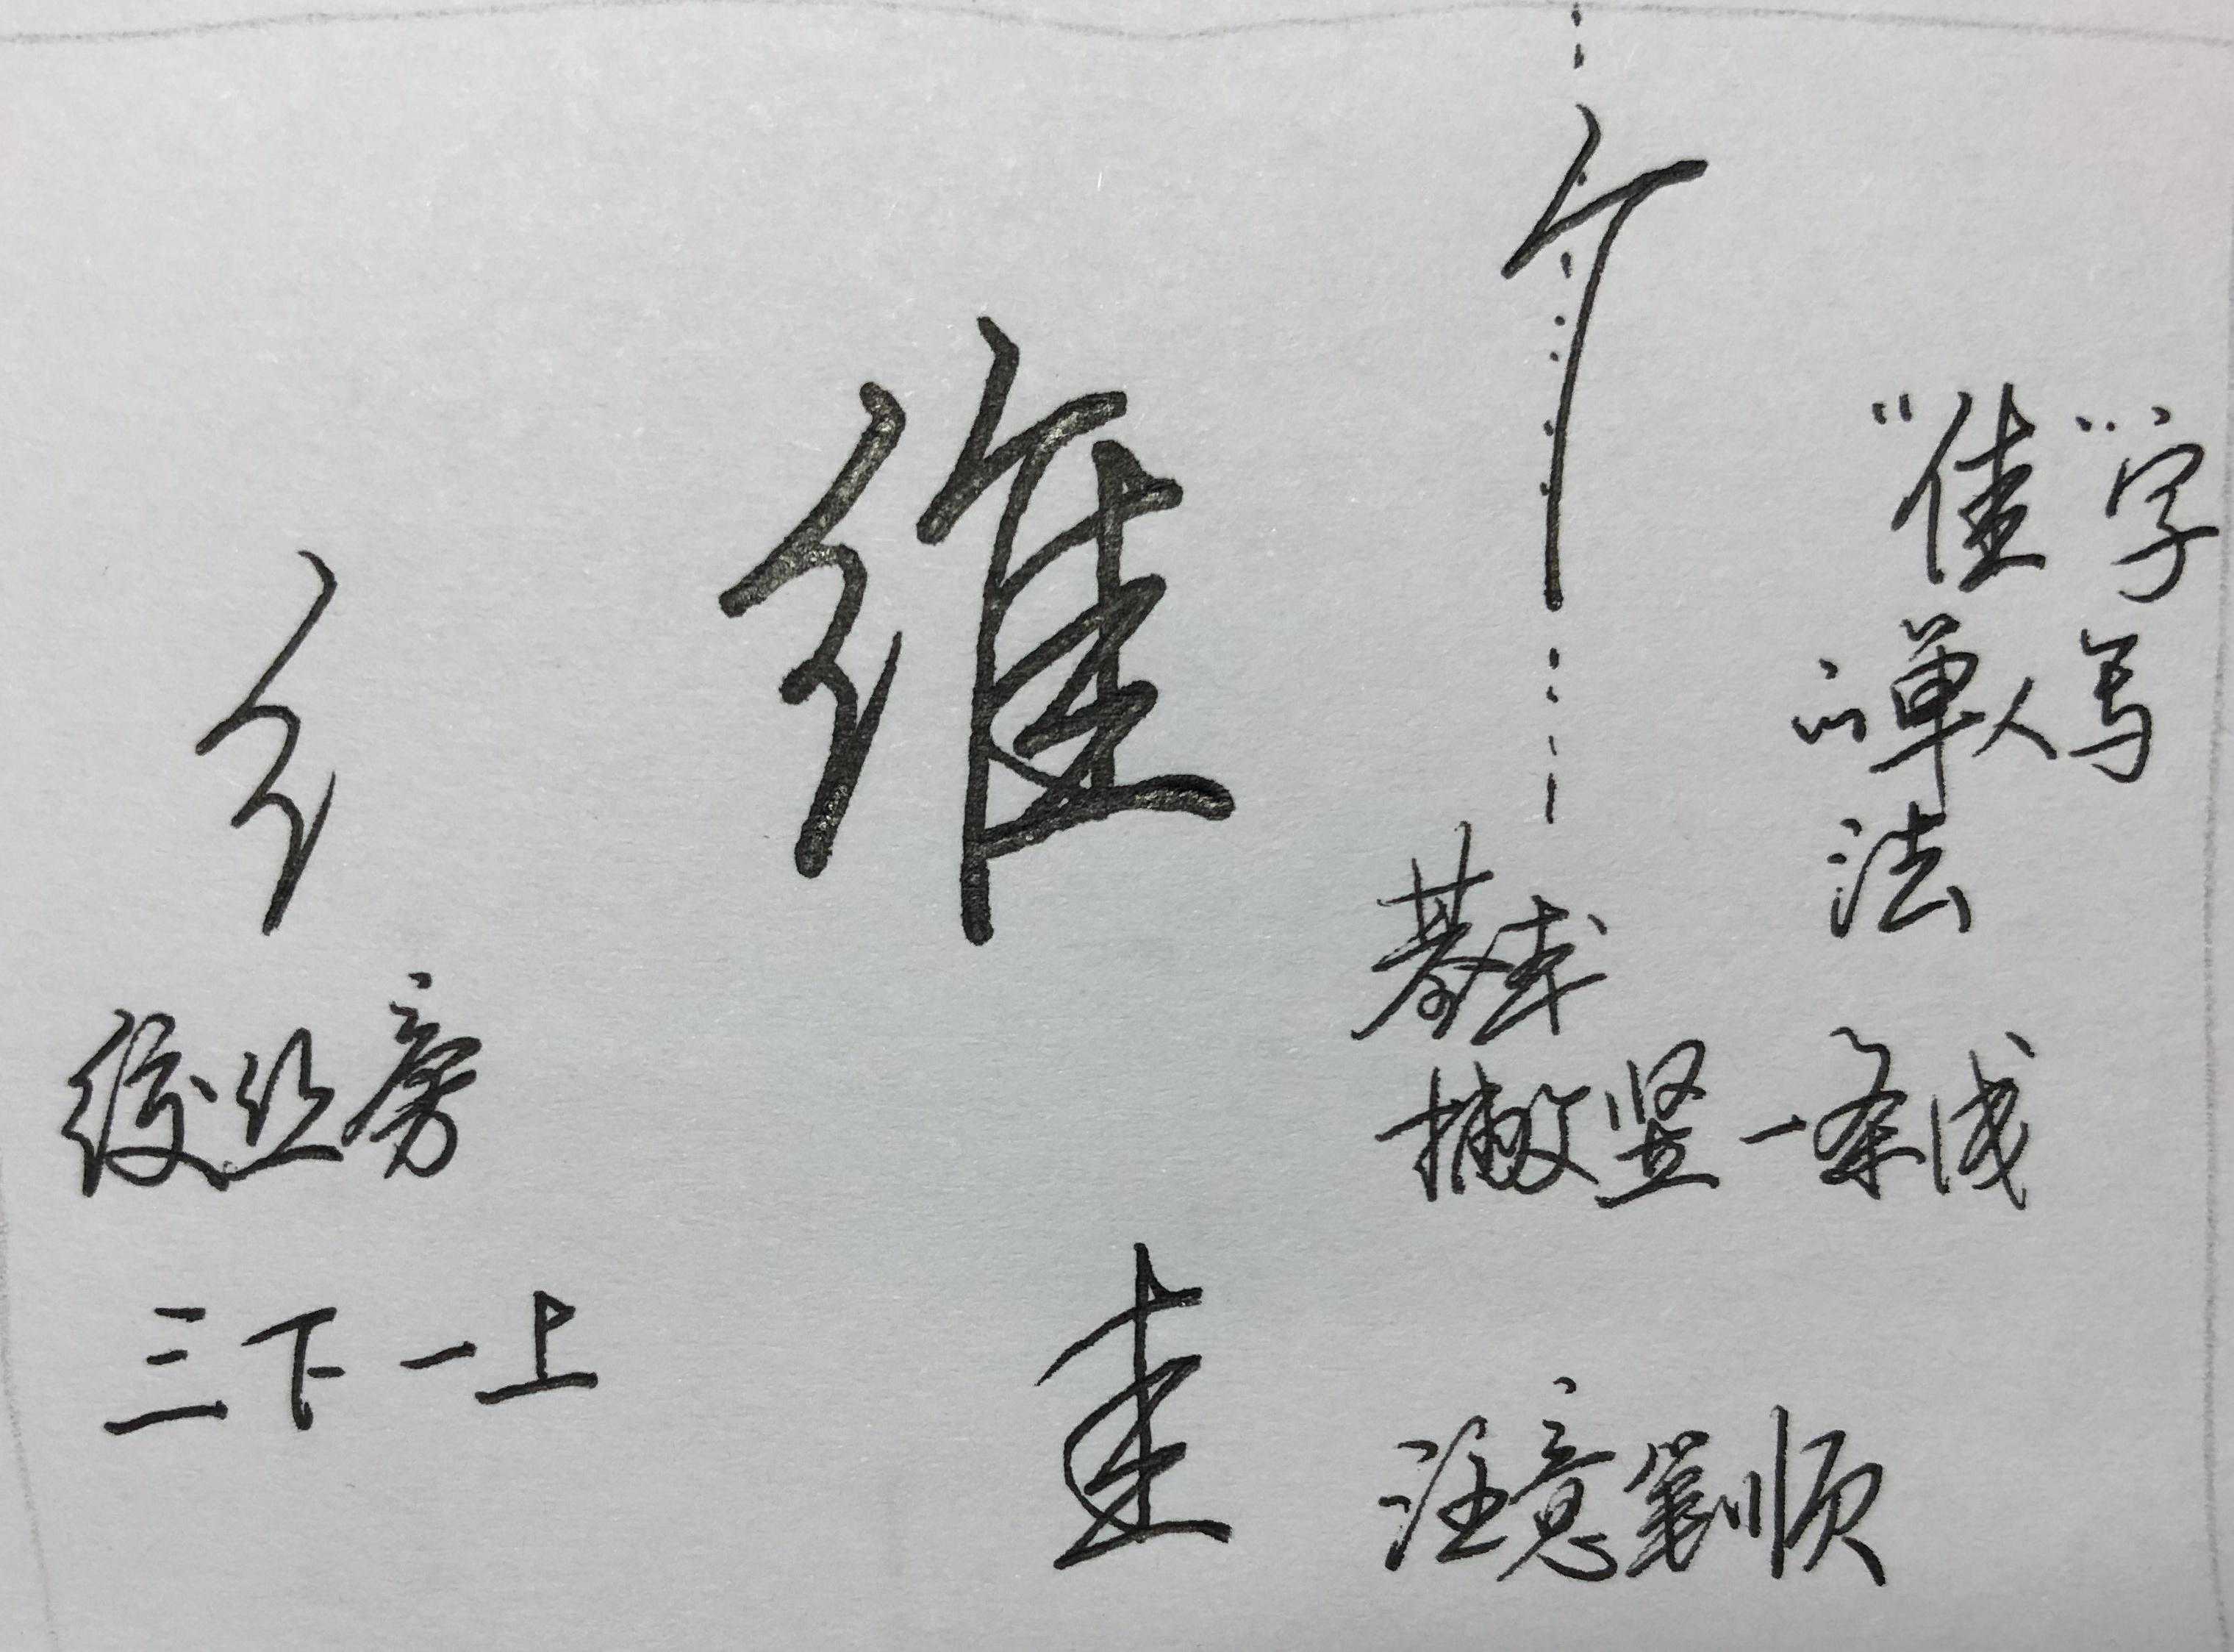 维
纟
绞丝旁
三下一上
亻
"隹"字
的单人写
法
基本
撇竖一条线
圭
注意笔顺